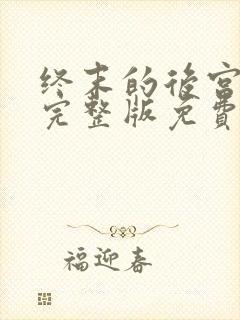 终末的後宫
完整版免費
福迎春